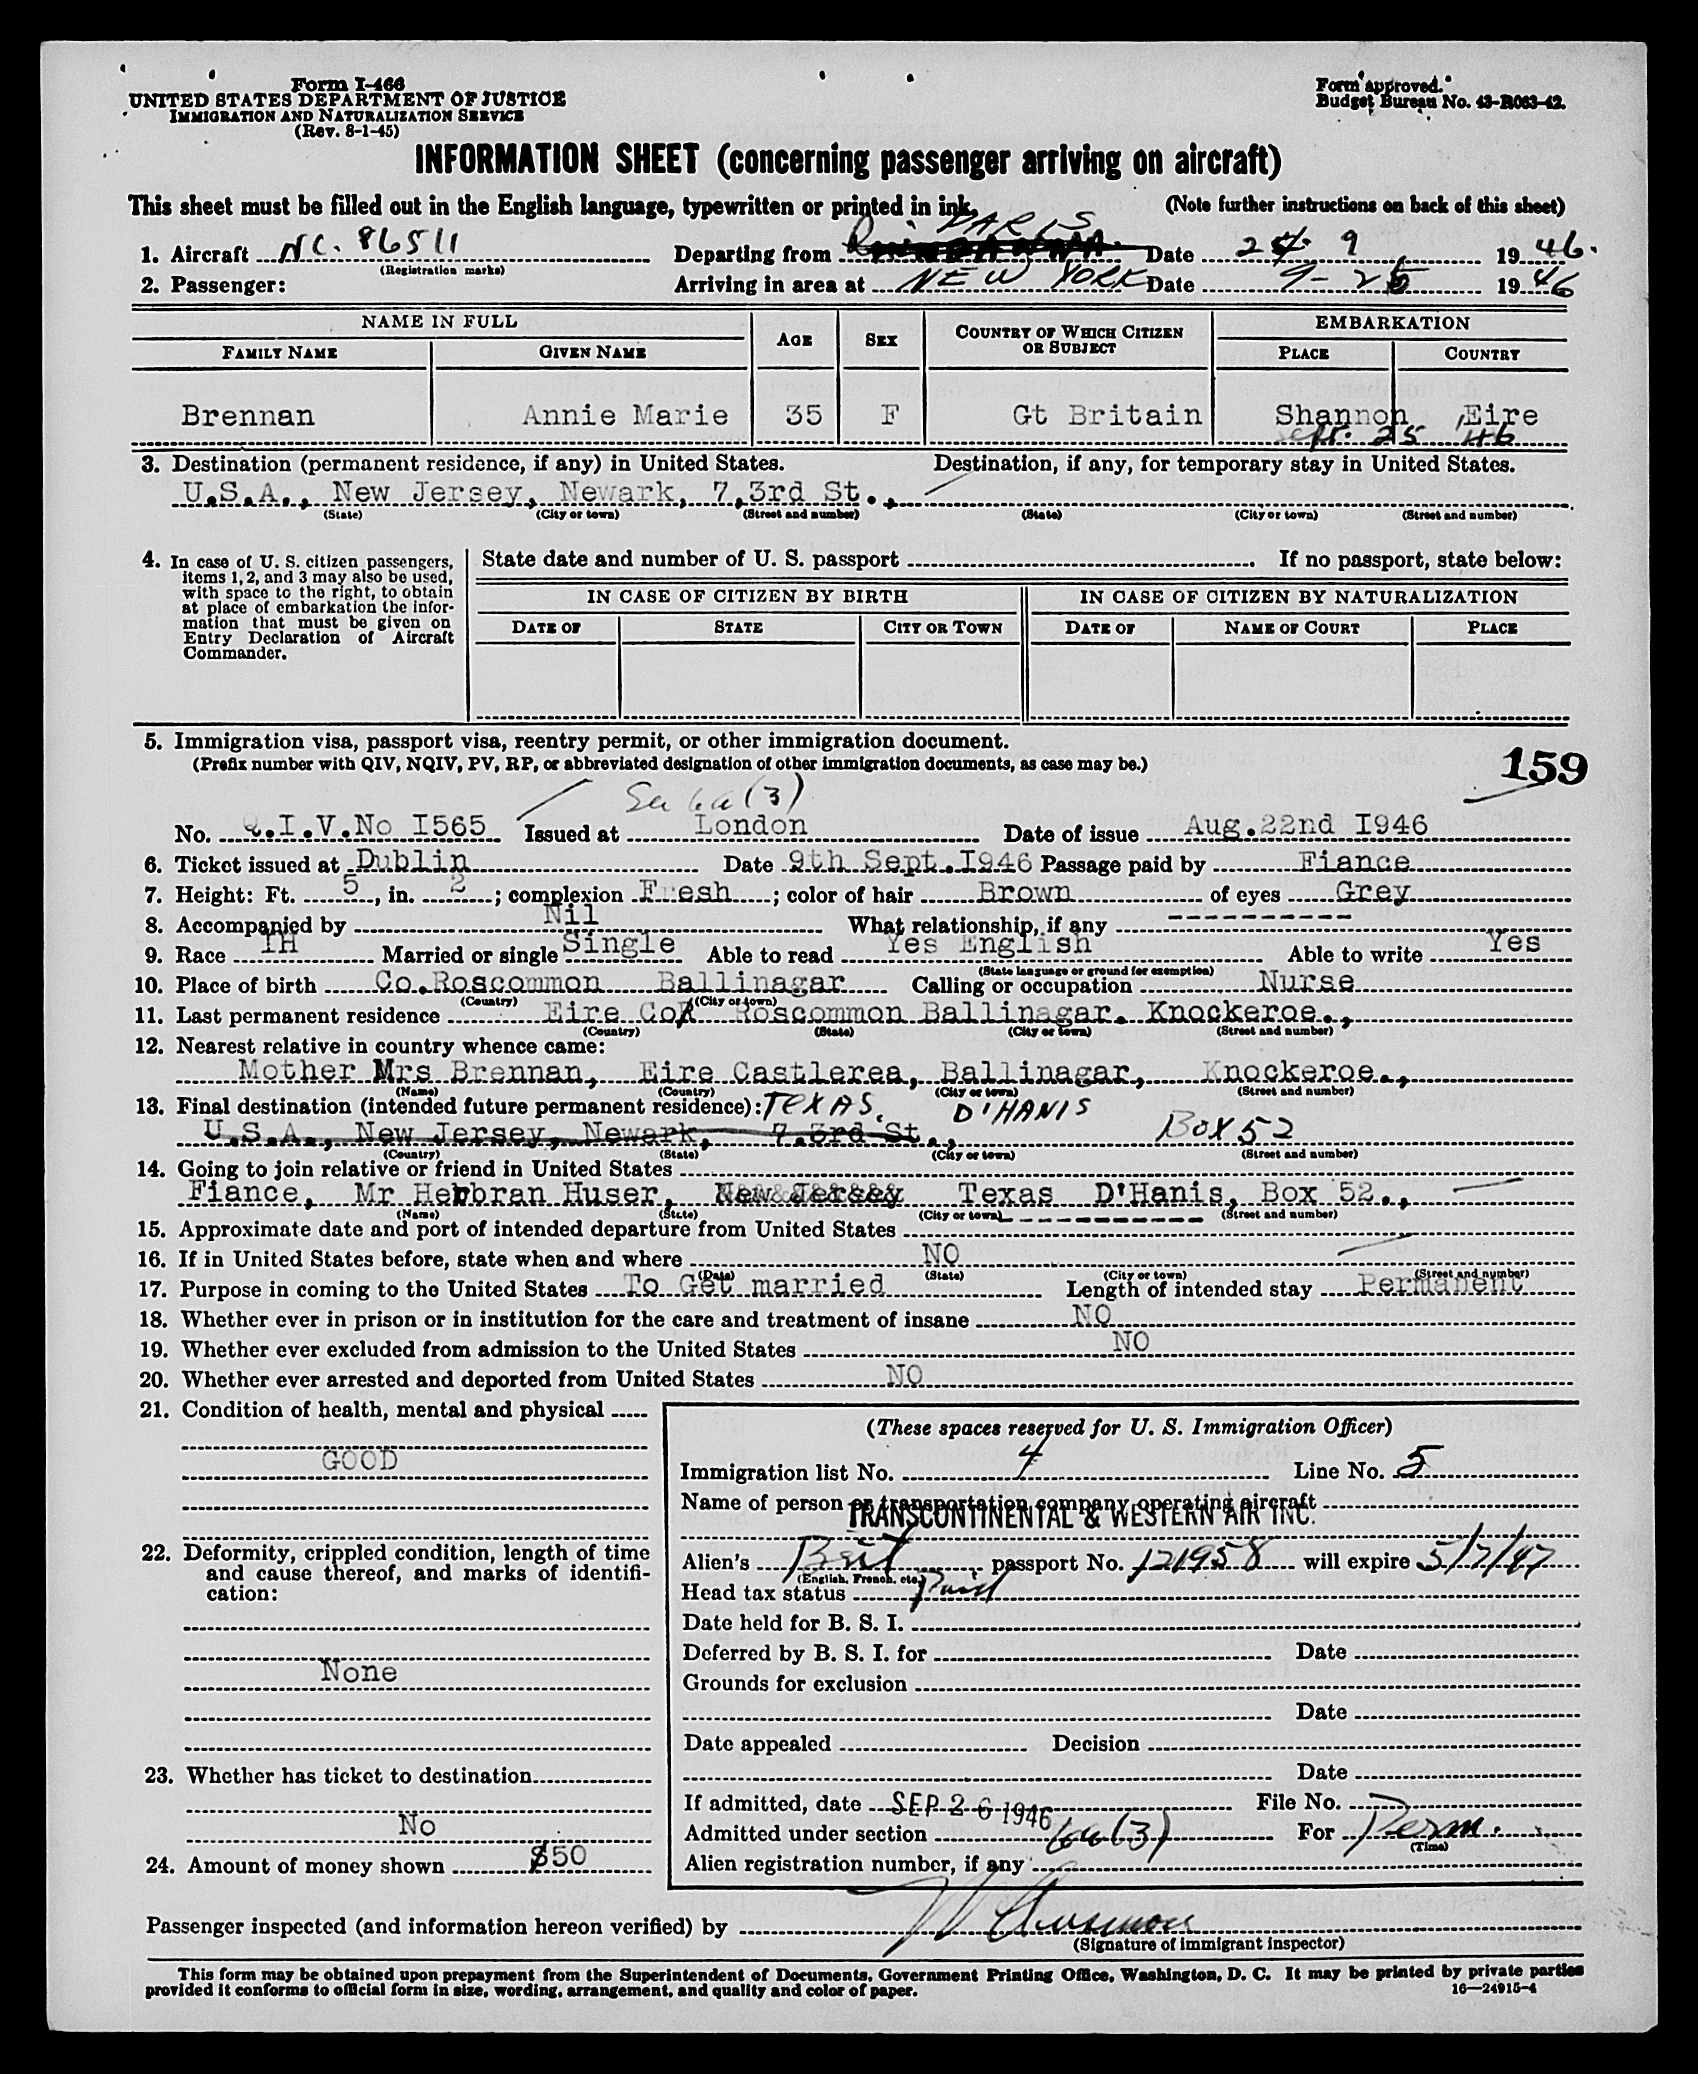 Form I-466
UNITED STATES DEPARTMENT OF JUSTICE
IMMIGRATION AND NATURALIZATION SERVICE
(Rev. 8-1-45)
Form approved.
Budget Bureau No. 43-R063-42.
INFORMATION SHEET (concerning passenger arriving on aircraft)
This sheet must be filled out in the English language, typewritten or printed in ink. (Note further instructions on back of this sheet)
1. Aircraft NC. 86511 Departing from PARIS Date 24 9 1946.
(Registration marks)
2. Passenger: Arriving in area at NEW YORK Date 9-25 1946
NAME IN FULL AGE SEX COUNTRY OF WHICH CITIZEN OR SUBJECT EMBARKATION
FAMILY NAME GIVEN NAME PLACE COUNTRY
Brennan Annie Marie 35 F Gt Britain Shannon Eire
Sept. 25 46
3. Destination (permanent residence, if any) in United States. Destination, if any, for temporary stay in United States.
U.S.A., New Jersey, Newark, 7,3rd St.,
(State) (City or town) (Street and number) (State) (City or town) (Street and number)
4. In case of U. S. citizen passengers, items 1, 2, and 3 may also be used, with space to the right, to obtain at place of embarkation the information that must be given on Entry Declaration of Aircraft Commander.
State date and number of U. S. passport If no passport, state below:
IN CASE OF CITIZEN BY BIRTH IN CASE OF CITIZEN BY NATURALIZATION
DATE OF STATE CITY OR TOWN DATE OF NAME OF COURT PLACE
5. Immigration visa, passport visa, reentry permit, or other immigration document.
(Prefix number with QIV, NQIV, PV, RP, or abbreviated designation of other immigration documents, as case may be.)
159
6a(3)
No. Q.I.V.No I565 Issued at London Date of issue Aug.22nd I946
6. Ticket issued at Dublin Date 9th Sept.I946 Passage paid by Fiance
7. Height: Ft. 5, in. 2; complexion Fresh; color of hair Brown of eyes Grey
8. Accompanied by Nil What relationship, if any ----------
9. Race IH Married or single Single Able to read Yes English Able to write Yes
(State language or ground for exemption)
10. Place of birth Co.Roscommon Ballinagar Calling or occupation Nurse
(Country) (City or town)
11. Last permanent residence Eire Co Roscommon Ballinagar. Knockeroe.,
(Country) (State) (City or town) (Street and number)
12. Nearest relative in country whence came:
Mother Mrs Brennan, Eire Castlerea, Ballinagar, Knockeroe.,
(Name) (Country) (City or town) (Street and number)
13. Final destination (intended future permanent residence): TEXAS. D'HANIS
U.S.A., New Jersey, Newark, 7.3rd St., Box 52
(Country) (State) (City or town) (Street and number)
14. Going to join relative or friend in United States
Fiance, Mr Herbran Huser, New Jersey Texas D'Hanis, Box 52.,
(Name) (State) (City or town) (Street and number)
15. Approximate date and port of intended departure from United States ----------
16. If in United States before, state when and where NO
(Date) (State) (City or town) (Street and number)
17. Purpose in coming to the United States To Get married Length of intended stay Permanent
18. Whether ever in prison or in institution for the care and treatment of insane NO
19. Whether ever excluded from admission to the United States NO
20. Whether ever arrested and deported from United States NO
21. Condition of health, mental and physical
GOOD
22. Deformity, crippled condition, length of time and cause thereof, and marks of identification:
None
23. Whether has ticket to destination
No
24. Amount of money shown $50
(These spaces reserved for U. S. Immigration Officer)
Immigration list No. 4 Line No. 5
Name of person or transportation company operating aircraft
TRANSCONTINENTAL & WESTERN AIR INC.
Alien's Brit passport No. 121958 will expire 5/7/47
(English, French, etc.)
Head tax status Paid
Date held for B. S. I.
Deferred by B. S. I. for Date
Grounds for exclusion
Date
Date appealed Decision
Date
If admitted, date SEP 26 1946 File No.
Admitted under section 6a(3) For Perm.
(Time)
Alien registration number, if any
Passenger inspected (and information hereon verified) by
(Signature of immigrant inspector)
This form may be obtained upon prepayment from the Superintendent of Documents, Government Printing Office, Washington, D. C. It may be printed by private parties
provided it conforms to official form in size, wording, arrangement, and quality and color of paper. 16—24915-4